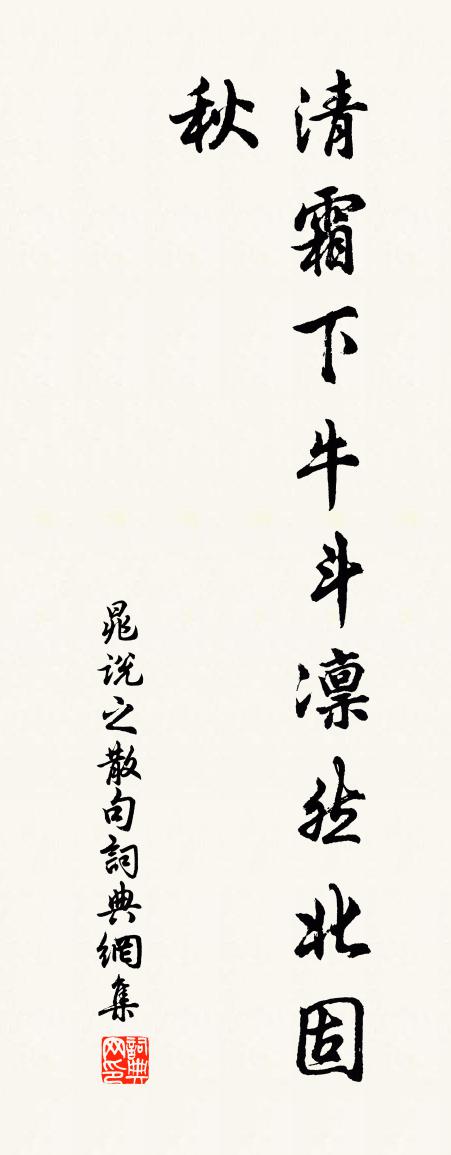 清霜下牛斗凛然北固
秋
晁說之散句詞典網集
詞典
网印